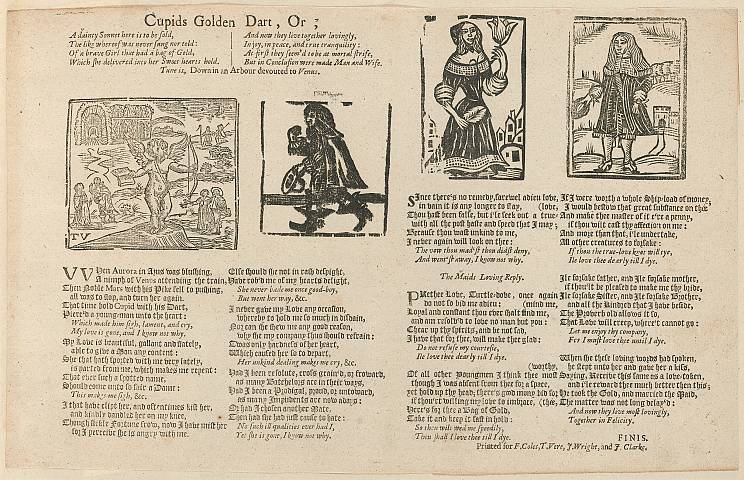 Cupids Golden Dart, Or;
A dainty Sonnet here is to be sold,
The like whereof was never sung nor told:
Of a brave Girl that had a bag of Gold,
Which she delivered into her Sweet hearts hold.
And now they live together lovingly,
In joy, in peace, and true tranquility:
At first they seem'd to be at mortal strife,
But in Conclusion were made Man and Wife.
Tune is, Down in an Arbour devouted to Venus.
TV
WHen Aurora in Azus was blushing,
A nimph of Venus attending the train,
Then noble Mars with his Pike fell to pushing,
all was to stop, and turn her again.
That time bold Cupid with his Dart,
Pierc'd a young-man unto the heart:
Which made him sigh, lament, and cry,
My love is gone, and I know not why.
My Love is beautiful, gallant and stately,
able to give a Man any content:
She that hath sported with me very lately,
is parted from me, which makes me repent:
That ever such a spotted name,
Should come unto so fair a Dame:
This makes me sigh, &c.
I that have clipt her, and oftentimes kist her,
and kindly dandled her on my knee,
Though fickle Fortune frown, now I have mist her
for I perceive she is angry with me.
Else should she not in rash despight,
Have rob'd me of my hearts delight,
She never bade me once good-boy,
But went her way, &c.
I never gave my Love any occasion,
whereby to hold me so much in disdain,
Nor can she shew me any good reason,
why she my company thus should refrain:
Twas only hardness of her heart,
Which caused her so to depart,
Her unkind dealing makes me cry, &c.
Had I been resolute, cross grain'd, or froward,
as many Batchelors are in their ways,
Had I been a Prodigal, proud, or untoward,
as many Impudents are now adays:
Or had I chosen another Mate,
Then had she had just cause to hate:
No such ill qualities ever had I,
Yet she is gone, I know not why.
SInce there's no remedy, farewel adieu love,
in vain it is any longer to stay,
Thou hast been false, but i'le seek out a true
(love,
with all the post haste and speed that I may;
Because thou wast unkind to me,
I never again will look on thee:
The vow thou mad'st thou didst deny,
And went'st away, I know not why.
The Maids Loving Reply.
PRethee Love, Turtle-dove, once again
do not so bid me adieu
(mind me,
Loyal and constant thou ever shalt find me,
and am resolv'd to love no man but you:
Chear up thy spirits, and be not sad,
I have that for thee, will make thee glad:
Do not refuse my courtesie,
Ile love thee dearly till I dye.
(worthy,
Of all other youngmen I think thee most
though I was absent from thee for a space,
yet hold up thy head; there's good mony bid for
if thou'rt willing my love to imbrace,
(thee,
Here's for thee a Bag of Gold,
Take it and keep it fast in hold:
So thou wilt wed me speedily,
Thou shalt I love thee till I dye.
If I were worth a whole Ship-load of money,
I would bestow that great substance on thee
And make thee master of it e'ry penny,
if thou wilt cast thy affection on me:
And more than that, i'le undertake,
All other creatures to forsake:
If thou the true-love knot will tye,
Ile love thee dearly till I dye.
Ile forsake father, and Ile forsake mother,
if thou'lt be pleased to make me thy bride,
Ile forsake Sister, and Ile forsake Brother,
and all the kindred that I have beside,
The Proverb old allows it so,
That Love will creep, where't cannot go:
Let me enjoy thy company,
For I must love thee until I dye.
When she these loving words had spoken,
he stept unto her and gave her a kiss,
Saying, Receive this same as a love-token,
and i'le reward thee much better then this;
He took the Gold, and married the Maid,
The matter was not long delay'd:
And now they love most lovingly,
Together in Felicity.
FINIS.
Printed for F. Coles, T. Vere, J. Wright, and J. Clarke.